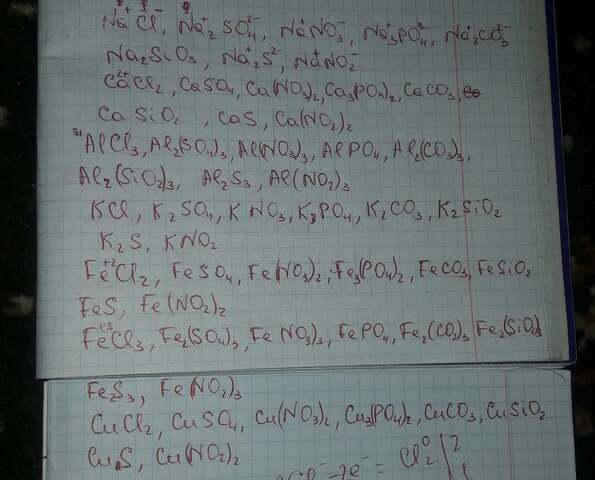 Na⁺Cl⁻, Na⁺₂SO₄²⁻, Na⁺NO₃⁻, Na⁺₃PO₄³⁻, Na⁺₂CO₃²⁻
Na₂SiO₃, Na⁺₂S²⁻, Na⁺NO₂
Ca²⁺Cl₂, CaSO₄, Ca(NO₃)₂, Ca₃(PO₄)₂, CaCO₃,
CaSiO₂, CaS, Ca(NO₂)₂
³⁺AlCl₃, Al₂(SO₄)₃, Al(NO₃)₃, AlPO₄, Al₂(CO₃)₃,
Al₂(SiO₂)₃, Al₂S₃, Al(NO₂)₃
KCl, K₂SO₄, KNO₃, K₃PO₄, K₂CO₃, K₂SiO₂
K₂S, KNO₂
Fe⁺²Cl₂, FeSO₄, Fe(NO₃)₂, Fe₃(PO₄)₂, FeCO₃, FeSiO₂
FeS, Fe(NO₂)₂
Fe⁺³Cl₃, Fe₂(SO₄)₃, Fe(NO₃)₃, FePO₄, Fe₂(CO₃)₃ Fe₂(SiO₂)₃
Fe₂S₃, Fe(NO₂)₃
CuCl₂, CuSO₄, Cu(NO₃)₂, Cu₃(PO₄)₂, CuCO₃, CuSiO₂
CuS, Cu(NO₂)₂
= Cl₂⁰ | 2